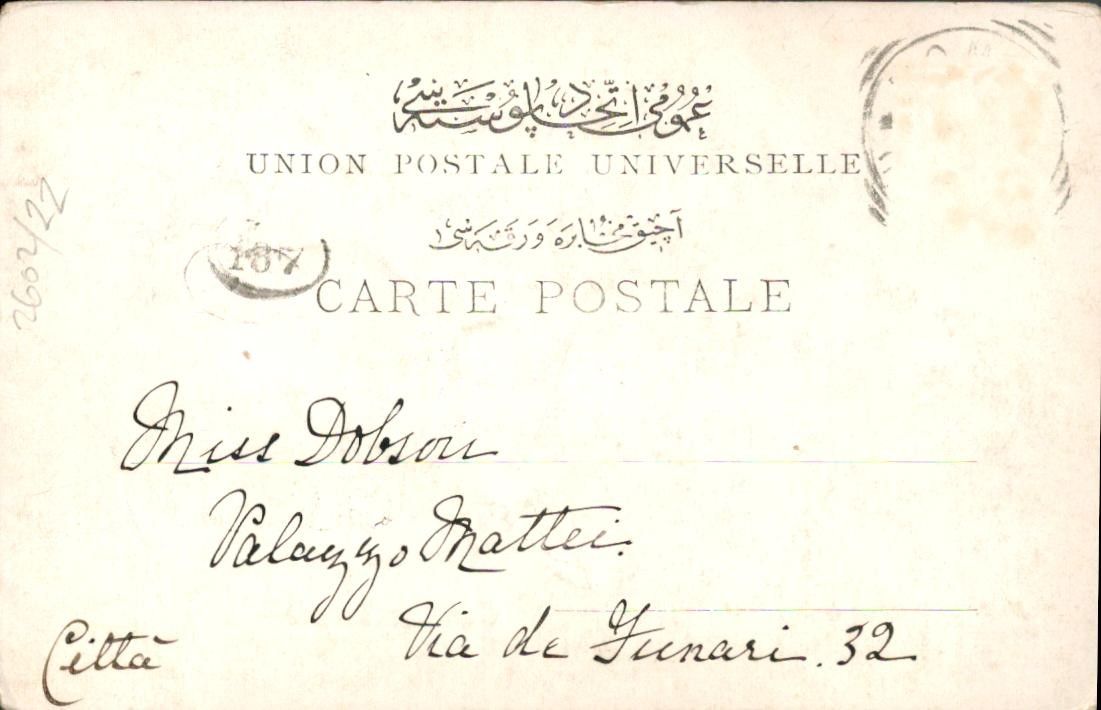 عمومی اتّحاد پوسته‌سی
UNION POSTALE UNIVERSELLE
آچیق مخابره ورقه‌سی
187
CARTE POSTALE
2602/22
Miss Dobson
Palazzo Mattei.
Via de Funari. 32
Città